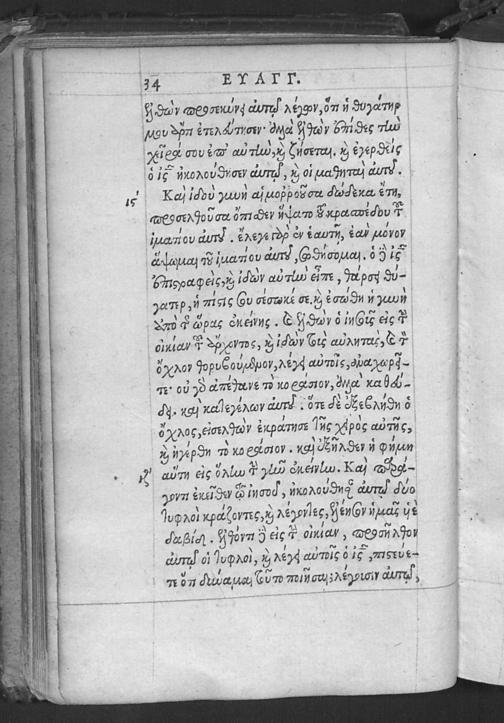 34 ΕΥΑΓΓ.
ἐλθὼν προσεκύνει αὐτῷ λέγων, ὅτι ἡ θυγάτηρ
μου ἄρτι ἐτελεύτησεν· ἀλλὰ ἐλθὼν ἐπίθες τὴν
χεῖρά σου ἐπ' αὐτὴν, καὶ ζήσεται. καὶ ἐγερθεὶς
ὁ ἰς ἠκολούθησεν αὐτῷ, καὶ οἱ μαθηταὶ αὐτοῦ.
ιϛ' Καὶ ἰδοὺ γυνὴ αἱμορροοῦσα δώδεκα ἔτη,
προσελθοῦσα ὄπισθεν ἥψατο τοῦ κρασπέδου τοῦ
ἱματίου αὐτοῦ. ἔλεγε γὰρ ἐν ἑαυτῇ, ἐὰν μόνον
ἅψωμαι τοῦ ἱματίου αὐτοῦ, σωθήσομαι. ὁ δὲ ἰς
ἐπιστραφεὶς, καὶ ἰδὼν αὐτὴν εἶπε, θάρσει θύ-
γατερ, ἡ πίστις σου σέσωκέ σε. καὶ ἐσώθη ἡ γυνὴ
ἀπὸ τῆς ὥρας ἐκείνης. καὶ ἐλθὼν ὁ ἰησοῦς εἰς τὴν
οἰκίαν τοῦ ἄρχοντος, καὶ ἰδὼν τοὺς αὐλητὰς, καὶ τὸν
ὄχλον θορυβούμενον, λέγει αὐτοῖς, ἀναχωρεῖ-
τε· οὐ γὰρ ἀπέθανε τὸ κοράσιον, ἀλλὰ καθεύ-
δει. καὶ κατεγέλων αὐτοῦ. ὅτε δὲ ἐξεβλήθη ὁ
ὄχλος, εἰσελθὼν ἐκράτησε τῆς χειρὸς αὐτῆς,
καὶ ἠγέρθη τὸ κοράσιον. καὶ ἐξῆλθεν ἡ φήμη
ιζ' αὕτη εἰς ὅλην τὴν γῆν ἐκείνην. Καὶ παρά-
γοντι ἐκεῖθεν τῷ ἰησοῦ, ἠκολούθησαν αὐτῷ δύο
τυφλοὶ κράζοντες, καὶ λέγοντες, ἐλέησον ἡμᾶς υἱὲ
δαβίδ. ἐλθόντι δὲ εἰς τὴν οἰκίαν, προσῆλθον
αὐτῷ οἱ τυφλοὶ, καὶ λέγει αὐτοῖς ὁ ἰς, πιστεύε-
τε ὅτι δύναμαι τοῦτο ποιῆσαι; λέγουσιν αὐτῷ,